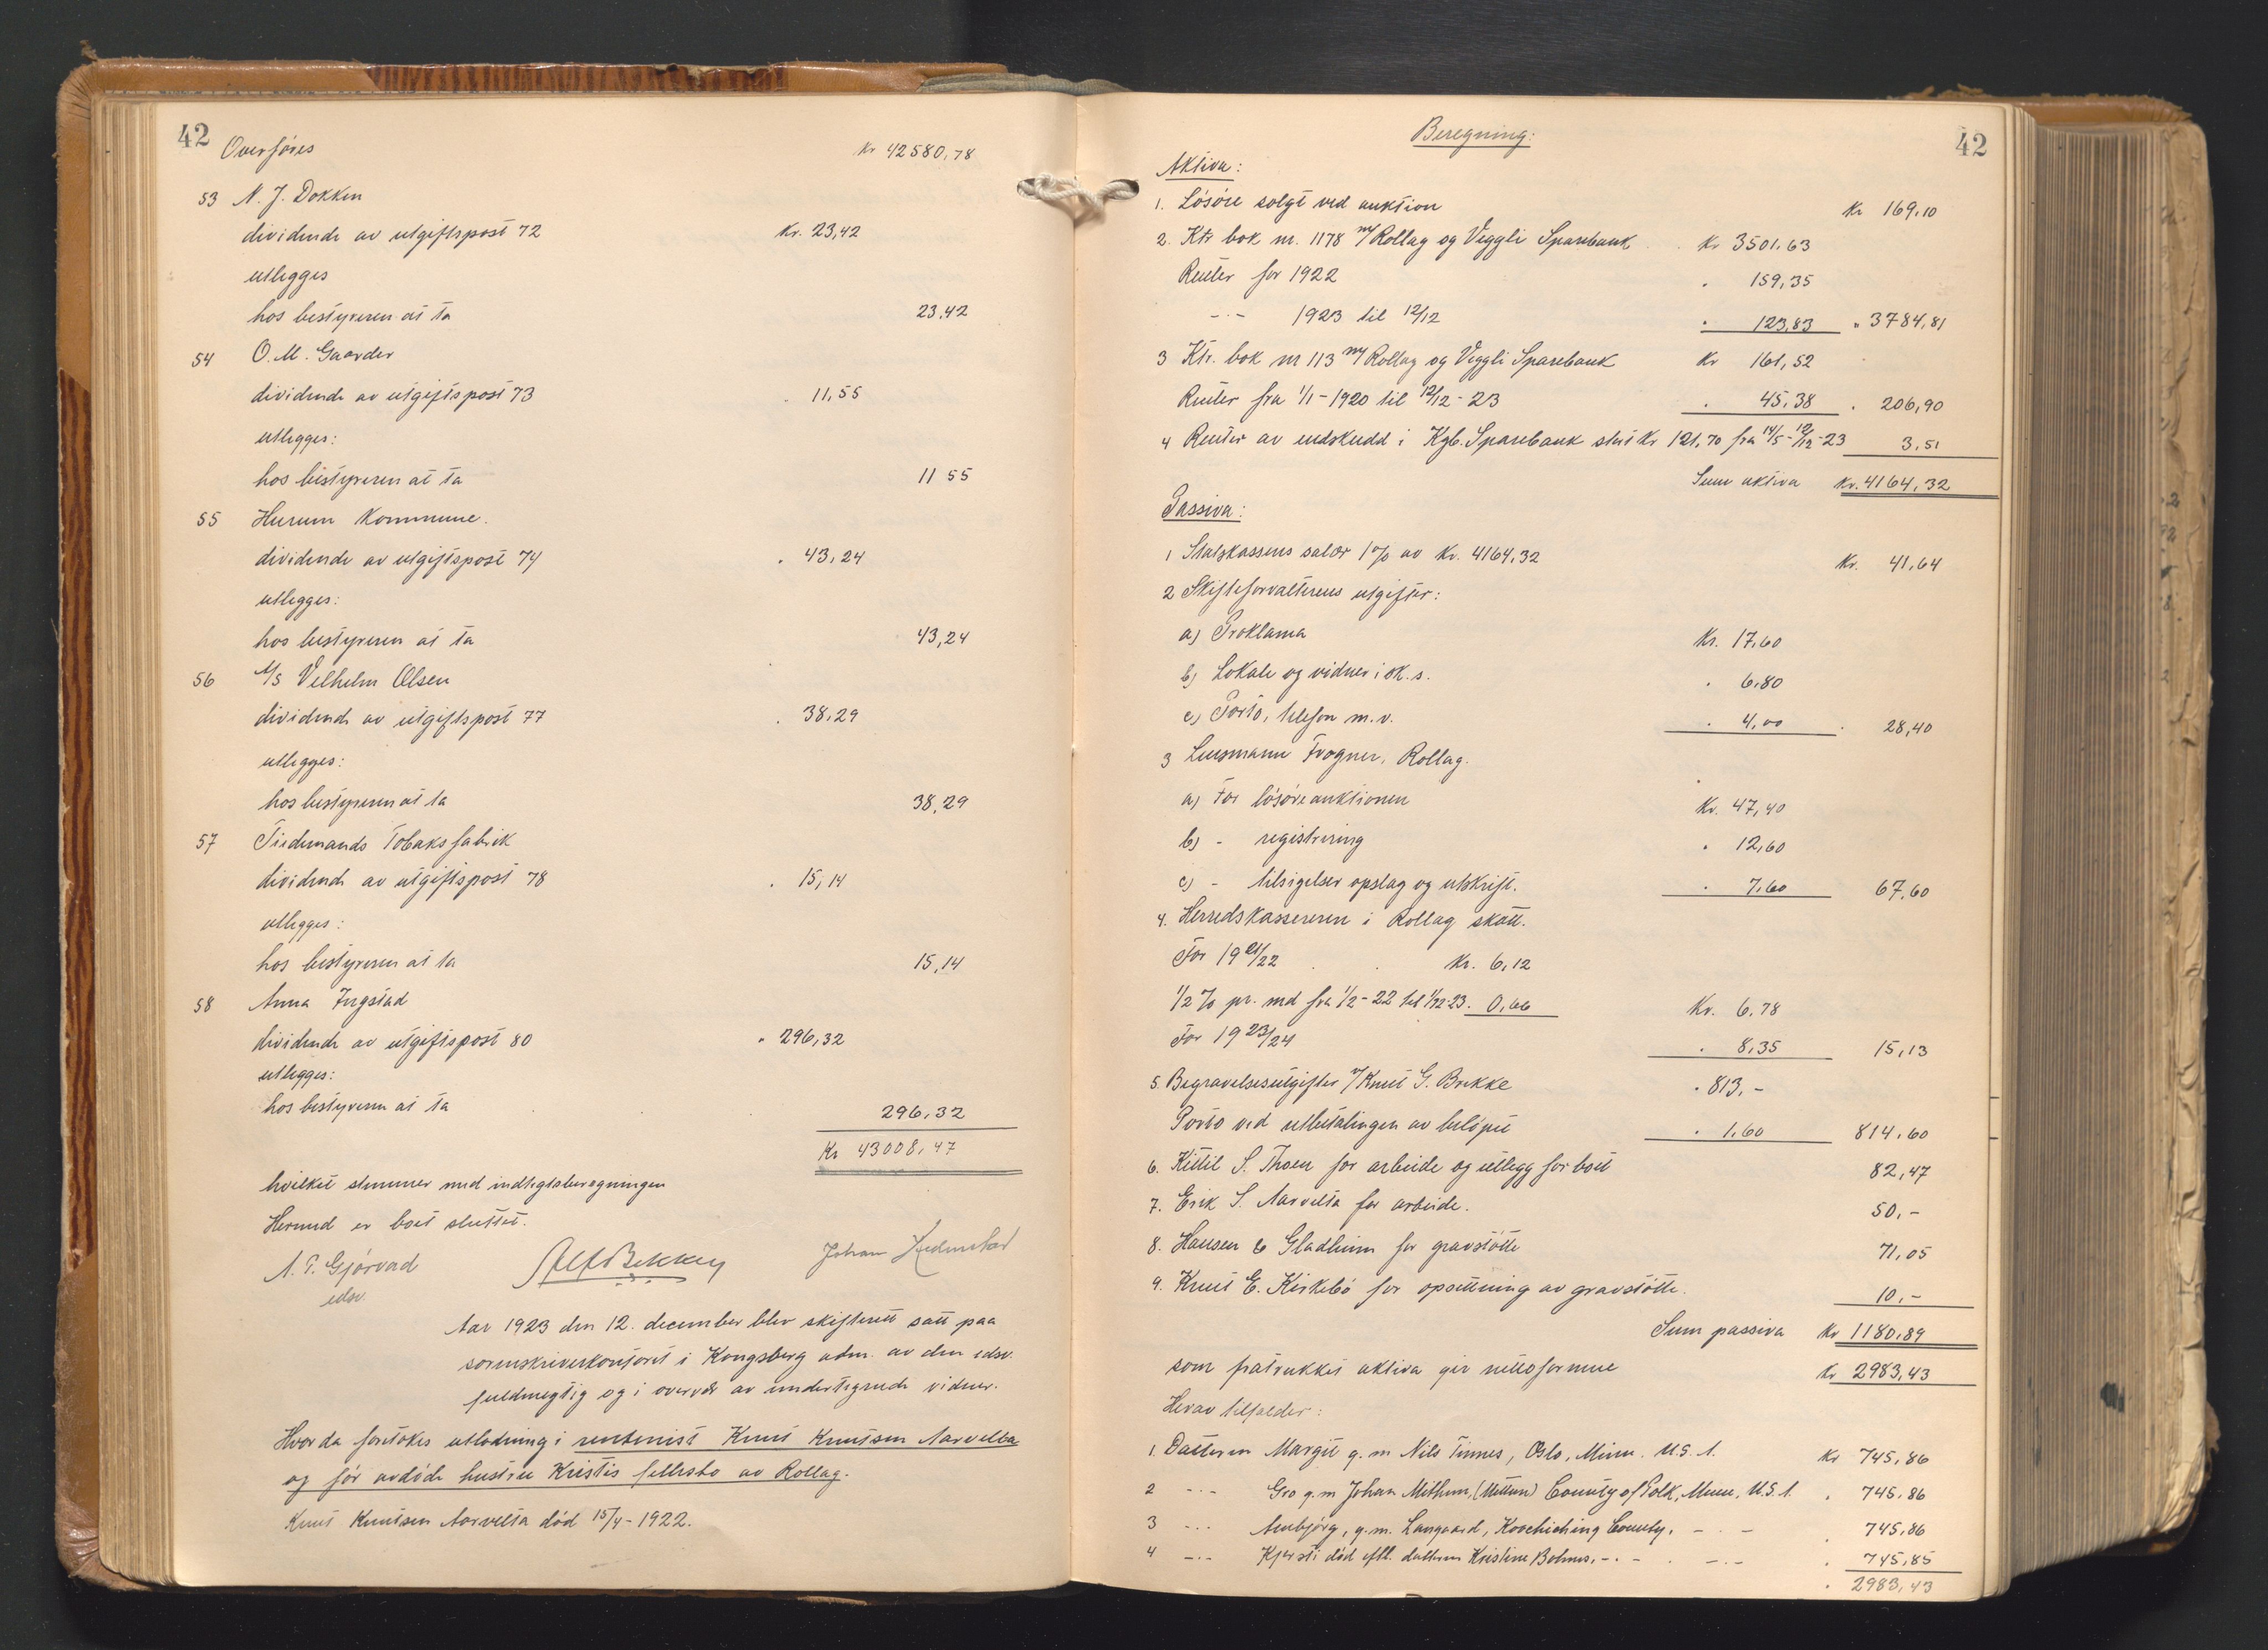 42
Overføres Kr 42580,78
53 N. J. Dokken
dividende av utgiftspost 72 Kr. 23,42
utlegges
hos bestyreren at ta 23,42
54 O. M. Gaarder
dividende av utgiftspost 73 . 11,55
utlegges:
hos bestyreren at ta 11 55
55 Hurum Kommune.
dividende av utgiftspost 74 . 43,24
utlegges:
hos bestyreren at ta 43,24
56 A/S Vilhelm Olsen
dividende av utgiftspost 77 . 38,29
utlegges:
hos bestyreren at ta 38,29
57 Tiedemands Tobaksfabrik
dividende av utgiftspost 78 . 15,14
utlegges:
hos bestyreren at ta 15,14
58 Anna Ingstad
dividende av utgiftspost 80 . 296,32
utlegges:
hos bestyreren at ta 296,32
Kr 43008,47
hvilket stemmer med indtægtsberegningen
Hermed er boet sluttet.
A. T. Gjørvad Alf Bekken Johan
edsv.
Aar 1923 den 12. december blev skifterett satt paa
sorenskriverkontoret i Kongsberg adm. av den edsv.
fuldmegtig og i overvær av undertegnede vidner.
Hvor da foretokes utlodning i rentenist Knut Knutsen Aarvelta
og før avdøde hustru Kristis fellesbo av Rollag.
Knut Knutsen Aarvelta død 15/4-1922.
42
Beregning:
Aktiva:
1. Løsøre solgt ved auktion Kr 169,10
2. Ktr bok nr. 1178 m/Rollag og Veggli Sparebank Kr 3501,63
Renter for 1922 . 159,35
-"- 1923 til 12/12 . 123,83 " 3784,81
3 Ktr. bok nr 113 m/Rollag og Veggli Sparebank Kr 161,52
Renter fra 1/1-1920 til 12/12-23 . 45,38 . 206,90
4 Renter av indskudd i Kgb. Sparebank stort Kr 121,70 fra 14/5-12/12-23 3,51
Sum aktiva Kr. 4164,32
Passiva:
1 Statskassens salær 1% av Kr. 4164,32 Kr. 41,64
2 Skifteforvalterens utgifter:
a) Proklama Kr. 17,60
b) Lokale og vidner i sk. s. . 6,80
c) Porto, telefon m.v. . 4,00 . 28,40
3 Lensmann Frogner, Rollag.
a) For løsøreauktionen Kr. 47,40
b) - registrering . 12,60
c) - tilsigelser opslag og utskrift. . 7,60 67,60
4. Herredskassereren i Rollag skatt.
For 1921/22 Kr. 6,12
1/2 % pr. md fra 1/2-22 til 1/12-23. 0,66 Kr. 6,78
For 1923/24 . 8,35 15,13
5. Begravelsesutgifter v/Knut G. Brekke . 813,-
Porto ved utbetalingen av beløpet . 1,60 814,60
6. Kittil S. Thoen for arbeide og utlegg for boet 82,47
7. Erik S. Aarvelta for arbeide. 50,-
8. Hansen & Gladheim for gravstøtte 71,05
9. Knut E. Kirkebø for opsettning av gravstøtte. 10,-
Sum passiva Kr 1180,89
som fratrukket aktiva gir nettoformue Kr 2983,43
Herav tilfalder:
1. Datteren Margit g. m Nils Tinnes, Oslo, Minn. U.S.A. Kr 745,86
2 -"- Gro g. m Johan Mithun, (Mittun) County of Polk, Minn, U.S.A. . 745,86
3 -"- Ambjørg, g. m. Langaard, Koochiching County, -"- . 745,86
4 -"- Kjersti død eftl. datteren Kristine Bolmes, -"- -"- . 745,85
. 2983,43